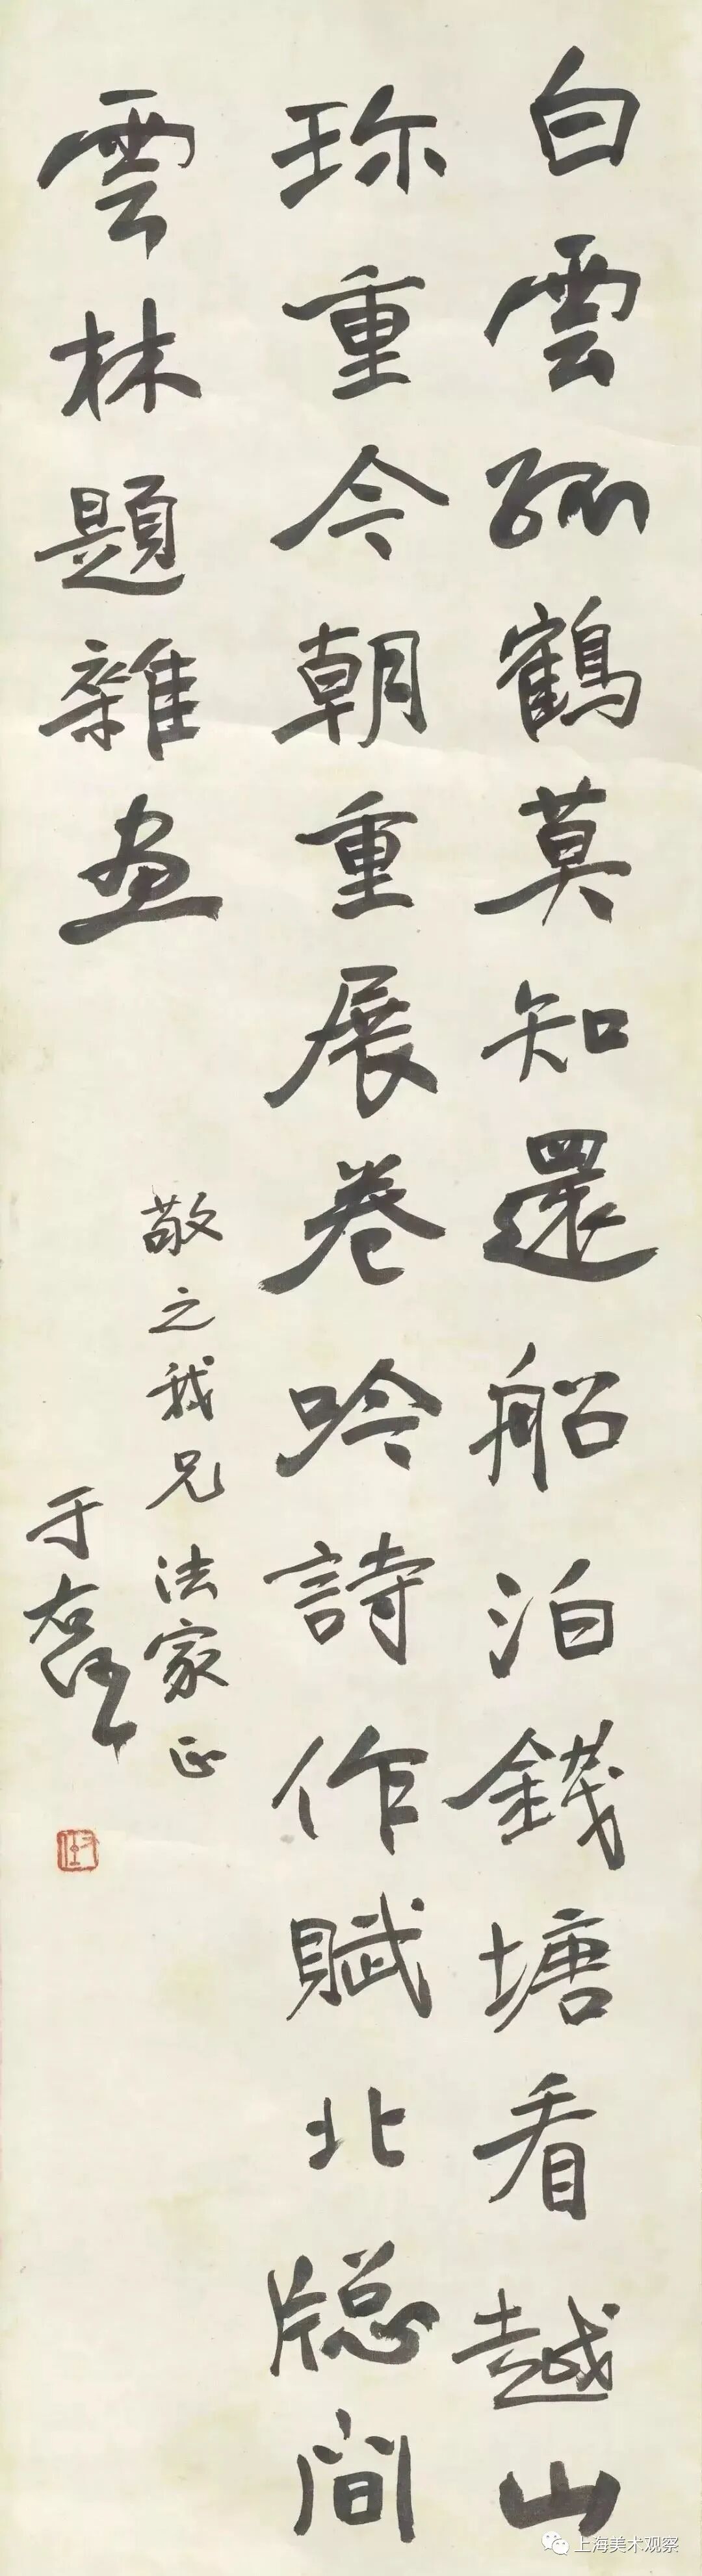 白雲孤鶴莫知還船泊錢塘看越山
珎重今朝重展卷吟詩作賦北牕間
雲林題雜画
敬之我兄法家正
于右任
右任
上海美术观察